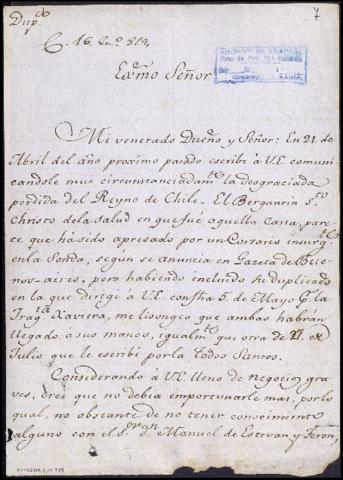 Dup.do
7
C. 16. En.o 819,
Exmo Señor
Mi venerado Dueño y Señor: En 21 de
Abril del año proximo pasado escribi à V.E. comuni-
candole mui circunstanciadam.te la desgraciada
perdida del Reyno de Chile. El Bergantin S.to
Christo de la Salud en que fué aquella Carta, pare-
ce que ha sido apresado por un Corsario insurg.te
en la Sonda, segun se anuncia en Gazeta de Bue-
nos-ayres, pero habiendo incluido su duplicado
en la que dirigí à V.E. con fha 5. de Mayo p.r la
Frag.ta Xaviera, me lisongeo que ambas habrán
llegado à sus manos, igualm.te que otra de 17. de
Julio que le escribi por la Todos Santos.
Considerando à V.E. lleno de negocios gra-
ves, crei que no debia importunarle mas, por lo
qual, no obstante de no tener conocimiento
alguno con el S.or d.n Manuel de Estevan y Feron,